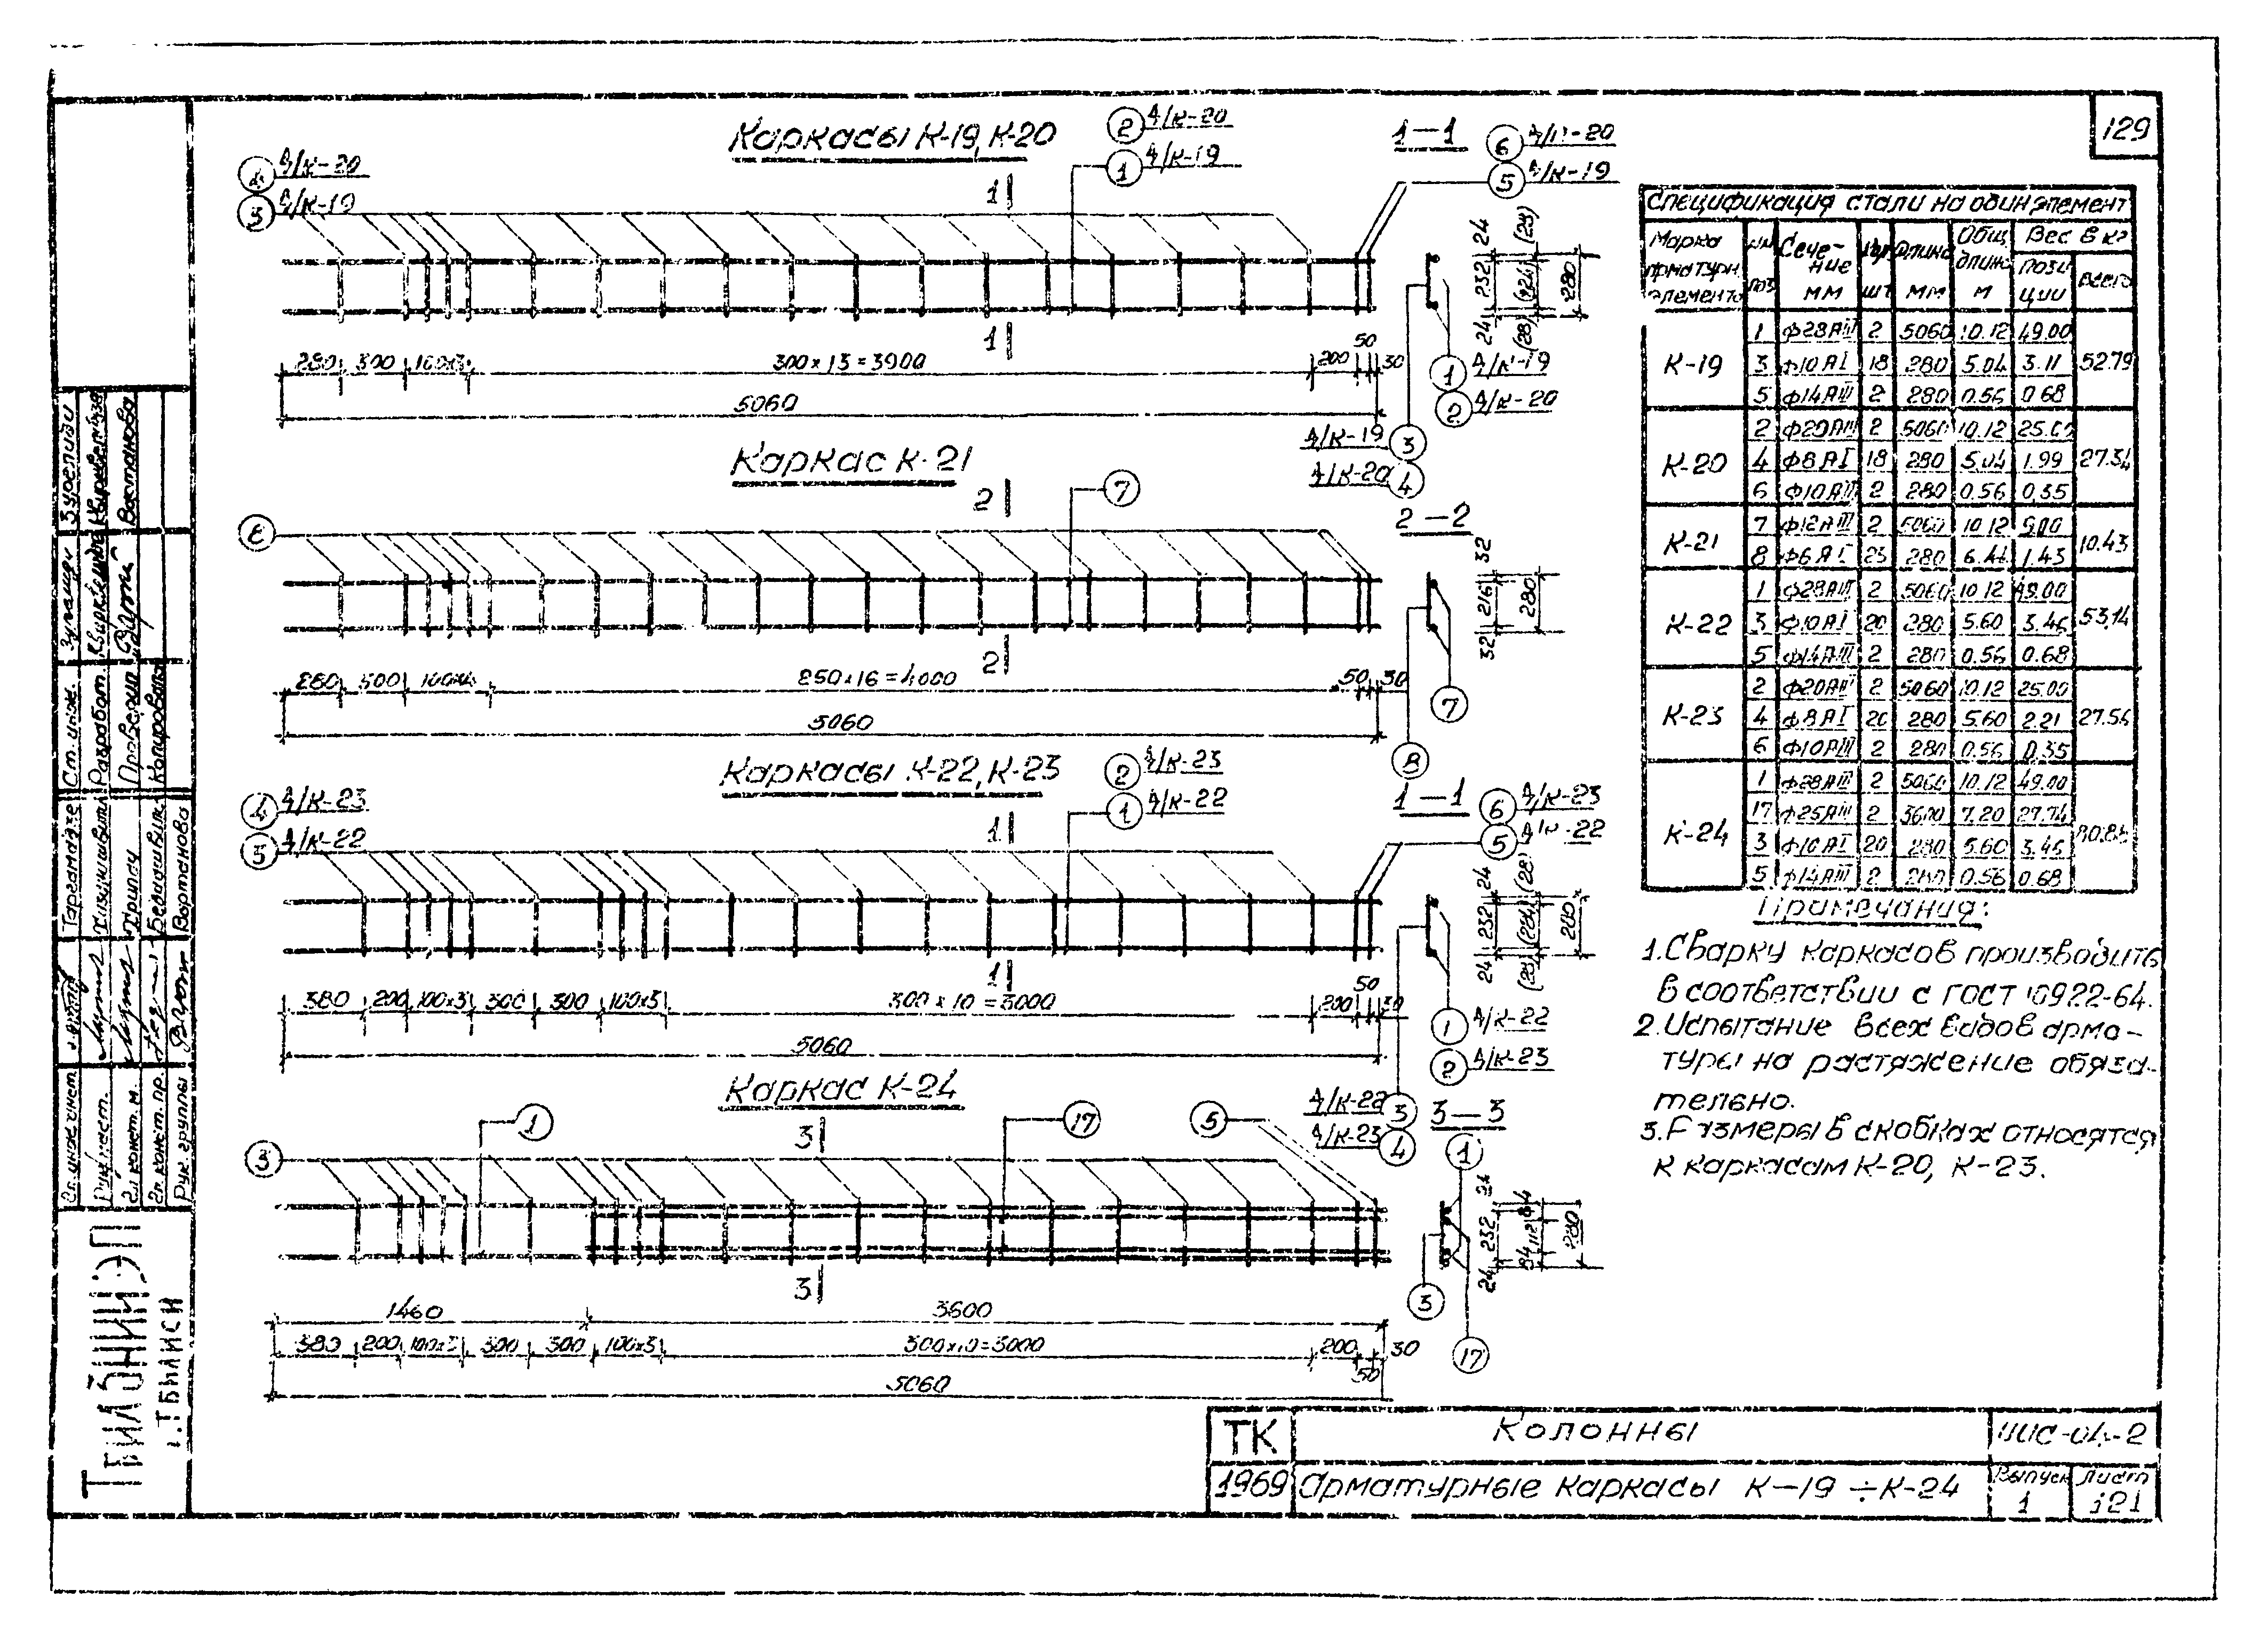 129
Каркасы К-19, К-20
2 Д/К-20
1 Д/К-19
4 Д/К-20
3 Д/К-19
1
1
280 300 100х3 300 х 13 = 3900 200 50 30
5060
1—1
6 Д/К-20
5 Д/К-19
24 232 24
(28) (224) (28)
280
1 Д/К-19
2 Д/К-20
Д/К-19 3
Д/К-20 4
Каркас К-21
7
8
2
2
280 300 100х4 250 х 16 = 4000 50 30
5060
2—2
32 216 32
280
7
8
Каркасы К-22, К-23
2 Д/К-23
1 Д/К-22
4 Д/К-23
3 Д/К-22
1
1
380 200 100х3 300 300 100х3 300 х 10 = 3000 200 50 30
5060
1—1
6 Д/К-23
5 Д/К-22
24 232 24
(28) (224) (28)
280
1 Д/К-22
2 Д/К-23
Д/К-22 3
Д/К-23 4
Каркас К-24
1
17
5
3
3
3
1460 3600
380 200 100х3 300 300 100х3 300х10=3000 200 50 30
5060
3—3
1
24 232 24
84 112 84
280
3
17
Спецификация стали на один элемент
Марка арматурн. элемента №№ поз Сечение мм Кол шт Длина мм Общ. длина м Вес в кг
Позиции Всего
К-19 1 Ф28АIII 2 5060 10.12 49.00 52.79
3 Ф10АI 18 280 5.04 3.11
5 Ф14АIII 2 280 0.56 0.68
К-20 2 Ф20АIII 2 5060 10.12 25.00 27.34
4 Ф8АI 18 280 5.04 1.99
6 Ф10АIII 2 280 0.56 0.35
К-21 7 Ф12АIII 2 5060 10.12 9.00 10.43
8 Ф6АI 23 280 6.44 1.43
К-22 1 Ф28АIII 2 5060 10.12 49.00 53.14
3 Ф10АI 20 280 5.60 3.46
5 Ф14АIII 2 280 0.56 0.68
К-23 2 Ф20АIII 2 5060 10.12 25.00 27.56
4 Ф8АI 20 280 5.60 2.21
6 Ф10АIII 2 280 0.56 0.35
К-24 1 Ф28АIII 2 5060 10.12 49.00 80.88
17 Ф25АIII 2 3600 7.20 27.74
3 Ф10АI 20 280 5.60 3.46
5 Ф14АIII 2 280 0.56 0.68
Примечания:
1. Сварку каркасов производить
в соответствии с ГОСТ 10922-64.
2. Испытание всех видов арма-
туры на растяжение обяза-
тельно.
3. Размеры в скобках относятся
к каркасам К-20, К-23.
ТК Колонны ИИС-04-2
1969 Арматурные каркасы К-19 ÷ К-24 Выпуск 1 Лист 121
Ст. инж.
Разработ.
Проверил
Копировал
Вартанова
Таргамадзе
Вартанова
Гл. инж. инст.
Гл. конст. м.
Гл. конст. пр.
Рук. группы
ТбилЗНИИЭП
г. Тбилиси